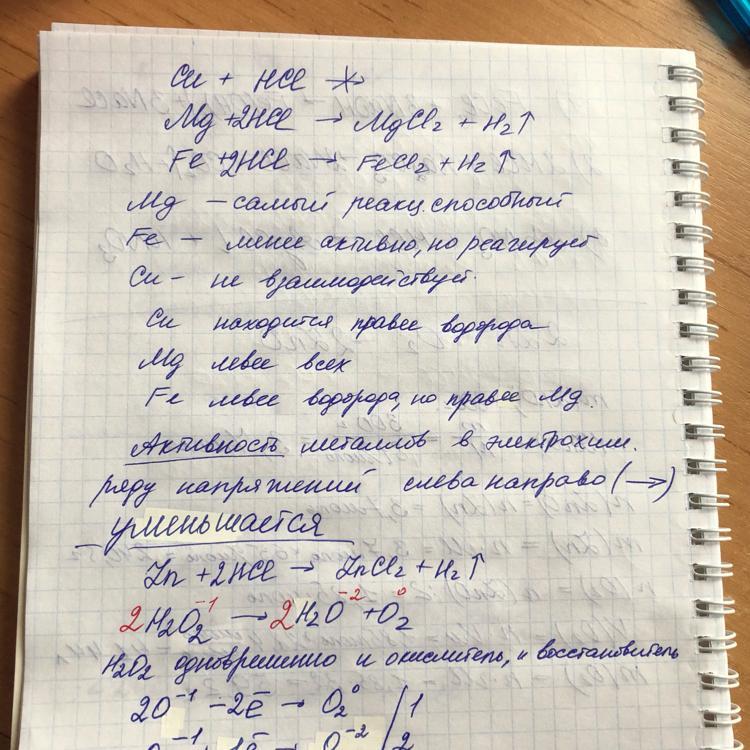 Cu + HCl ↛
Mg + 2HCl → MgCl₂ + H₂↑
Fe + 2HCl → FeCl₂ + H₂↑
Mg – самый реакц. способный
Fe – менее активно, но реагирует
Cu – не взаимодействует.
Cu находится правее водорода
Mg левее всех
Fe левее водорода, но правее Mg.
Активность металлов в электрохим.
ряду напряжений слева направо (→)
– уменьшается
Zn + 2HCl → ZnCl₂ + H₂↑
2H₂O₂⁻¹ → 2H₂O⁻² + O₂⁰
H₂O₂ одновременно и окислитель, и восстановитель
2O⁻¹ – 2ē → O₂⁰ | 1
O⁻¹ + 1ē → O⁻² | 2